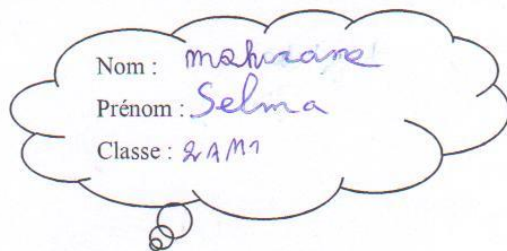 Nom : mahrane
Prénom : Selma
Classe : 2AM1